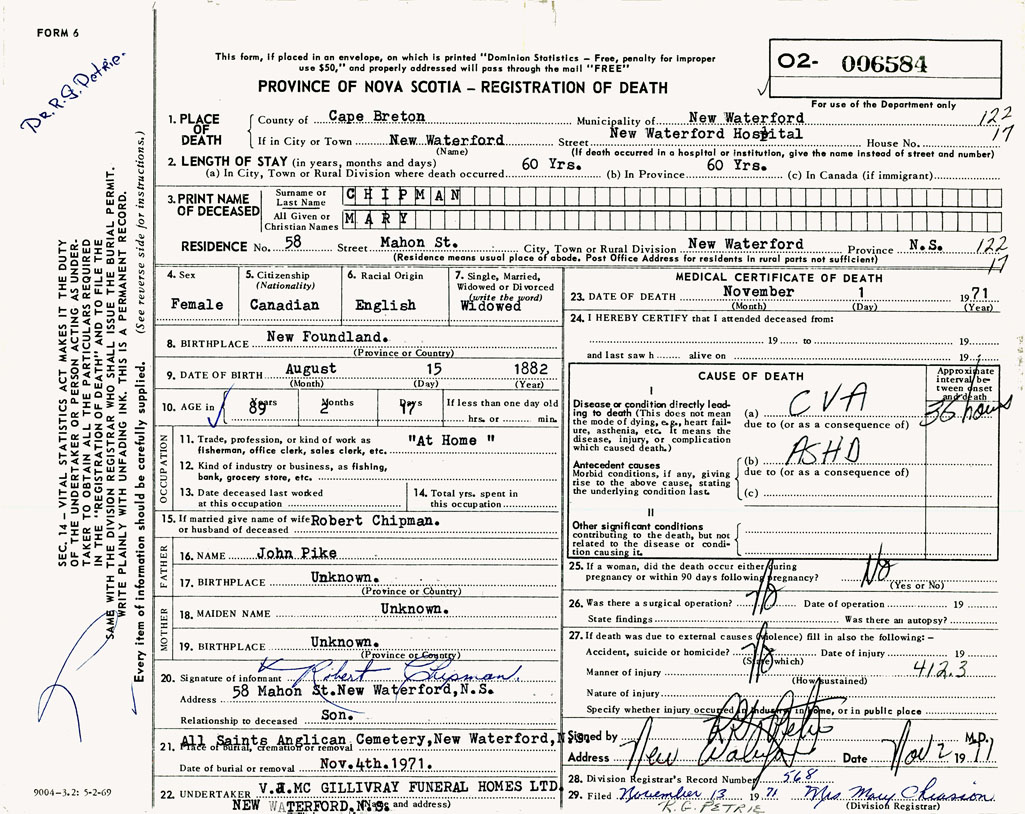 FORM 6
Dr. R. G. Petrie.
This form, if placed in an envelope, on which is printed "Dominion Statistics – Free, penalty for improper
use $50," and properly addressed will pass through the mail "FREE"
O2- 006584
PROVINCE OF NOVA SCOTIA – REGISTRATION OF DEATH
For use of the Department only
1. PLACE OF DEATH
County of Cape Breton Municipality of New Waterford 122
If in City or Town New Waterford Street New Waterford Hospital House No. 17
(Name) (If death occurred in a hospital or institution, give the name instead of street and number)
2. LENGTH OF STAY (in years, months and days)
(a) In City, Town or Rural Division where death occurred 60 Yrs. (b) In Province 60 Yrs. (c) In Canada (if immigrant)
3. PRINT NAME OF DECEASED
Surname or Last Name CHIPMAN
All Given or Christian Names MARY
RESIDENCE No. 58 Street Mahon St. City, Town or Rural Division New Waterford Province N.S. 122
(Residence means usual place of abode. Post Office Address for residents in rural parts not sufficient) 17
4. Sex
Female
5. Citizenship
(Nationality)
Canadian
6. Racial Origin
English
7. Single, Married,
Widowed or Divorced
(write the word)
Widowed
8. BIRTHPLACE New Foundland.
(Province or Country)
9. DATE OF BIRTH August 15 1882
(Month) (Day) (Year)
10. AGE in Years 89 Months 2 Days 17 If less than one day old
hrs. or min.
OCCUPATION
11. Trade, profession, or kind of work as
fisherman, office clerk, sales clerk, etc. "At Home "
12. Kind of industry or business, as fishing,
bank, grocery store, etc.
13. Date deceased last worked
at this occupation
14. Total yrs. spent in
this occupation
15. If married give name of wife
or husband of deceased Robert Chipman.
FATHER
16. NAME John Pike
17. BIRTHPLACE Unknown.
(Province or Country)
MOTHER
18. MAIDEN NAME Unknown.
19. BIRTHPLACE Unknown.
(Province or Country)
20. Signature of informant Robert Chipman.
Address 58 Mahon St.New Waterford,N.S.
Relationship to deceased Son.
21. All Saints Anglican Cemetery,New Waterford,N.S.
Place of burial, cremation or removal
Date of burial or removal Nov.4th.1971.
22. UNDERTAKER V.J.MC GILLIVRAY FUNERAL HOMES LTD
NEW WATERFORD,N.S.
(Name and address)
MEDICAL CERTIFICATE OF DEATH
23. DATE OF DEATH November 1 1971
(Month) (Day) (Year)
24. I HEREBY CERTIFY that I attended deceased from:
19 to 19
and last saw h alive on 19
CAUSE OF DEATH
Approximate
interval be-
tween onset
and death
I
Disease or condition directly lead-
ing to death (This does not mean
the mode of dying, e.g., heart fail-
ure, asthenia, etc. It means the
disease, injury, or complication
which caused death.)
(a) CVA 36 hours
due to (or as a consequence of)
Antecedent causes
Morbid conditions, if any, giving
rise to the above cause, stating
the underlying condition last.
(b) ASHD
due to (or as a consequence of)
(c)
II
Other significant conditions
contributing to the death, but not
related to the disease or condi-
tion causing it.
25. If a woman, did the death occur either during
pregnancy or within 90 days following pregnancy? No
(Yes or No)
26. Was there a surgical operation? No Date of operation 19
State findings Was there an autopsy?
27. If death was due to external causes (violence) fill in also the following:–
Accident, suicide or homicide? No Date of injury 19
(State which)
Manner of injury 412.3
(How sustained)
Nature of injury
Specify whether injury occurred in industry, in home, or in public place
Signed by M.D.
Address New Waterford Date Nov 2 1971
28. Division Registrar's Record Number 568
29. Filed November 13 1971 Mrs Mary Chiasson
(Division Registrar)
R.G. PETRIE
SEC. 14 – VITAL STATISTICS ACT MAKES IT THE DUTY
OF THE UNDERTAKER OR PERSON ACTING AS UNDER-
TAKER TO OBTAIN ALL THE PARTICULARS REQUIRED
IN THE "REGISTRATION OF DEATH" AND TO FILE THE
SAME WITH THE DIVISION REGISTRAR WHO SHALL ISSUE THE BURIAL PERMIT.
WRITE PLAINLY WITH UNFADING INK. THIS IS A PERMANENT RECORD.
Every item of information should be carefully supplied. (See reverse side for instructions.)
9004-3.2: 5-2-69